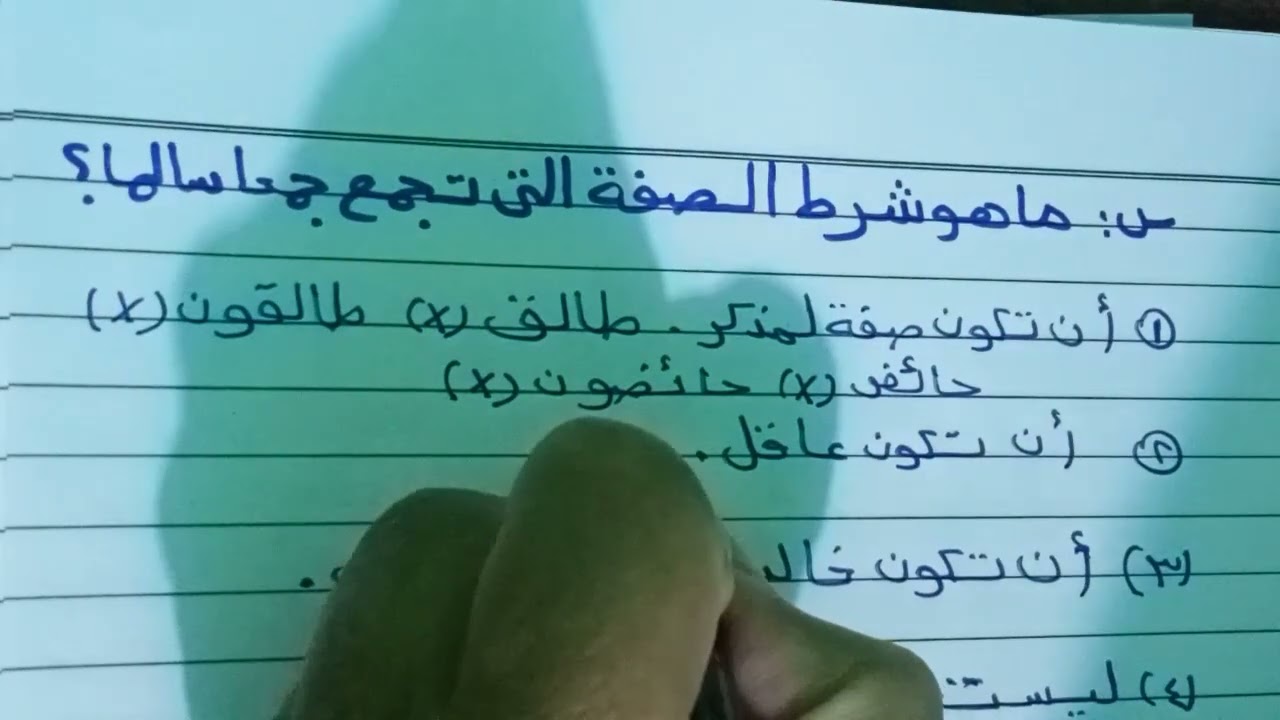 س: ما هو شرط الصفة التي تجمع جمعا سالما؟
(١) أن تكون صفة لمذكر. طالق (x) طالقون (x)
حائض (x) حائضون (x)
(٢) أن تكون عاقل.
(٣) أن تكون
(٤) ليست